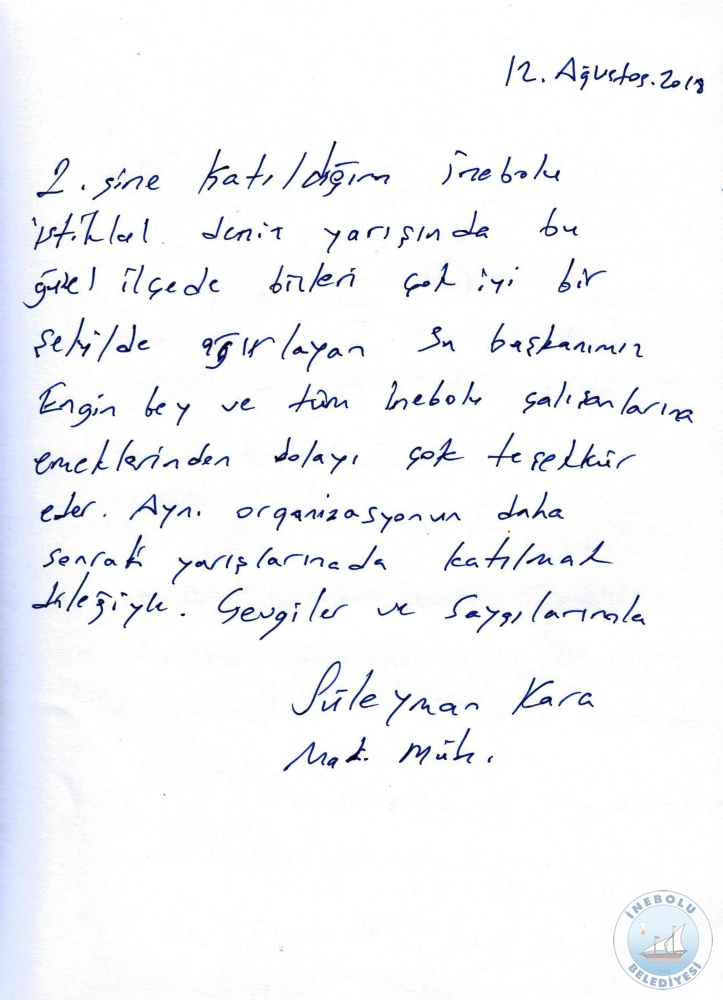 12. Ağustos. 2018
2. sine katıldığım İnebolu
istiklal deniz yarışında bu
güzel ilçede bizleri çok iyi bir
şekilde ağırlayan Sn başkanımız
Engin bey ve tüm İnebolu çalışanlarına
emeklerinden dolayı çok teşekkür
eder. Aynı organizasyonun daha
sonraki yarışlarınada katılmak
dileğiyle. Sevgiler ve Saygılarımla
Süleyman Kara
Mak. Müh.
İNEBOLU
BELEDİYESİ